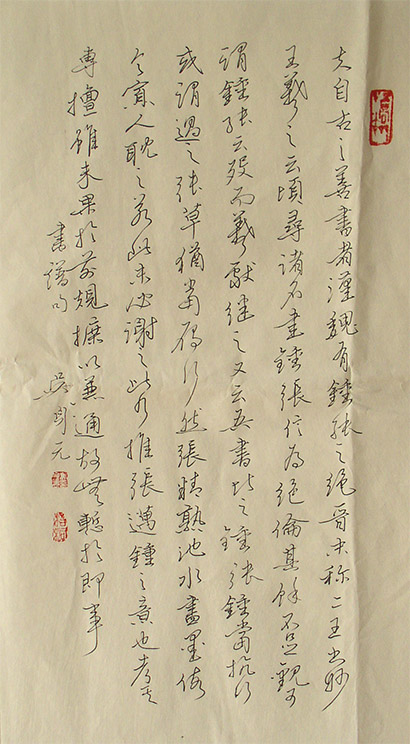 夫自古之善書者漢魏有鍾張之絕晉末称二王之妙
王羲之云頃尋諸名書鍾張信為絕倫其餘不足觀可
謂鍾張云歿而羲獻繼之又云吾書比之鍾張鍾當抗行
或謂過之張草猶當雁行然張精熟池水盡墨假
令寡人耽之若此未必謝之此乃推張邁鍾之意也考其
專擅雖未果於前規摭以兼通故無慙於即事
書譜句 吳 元